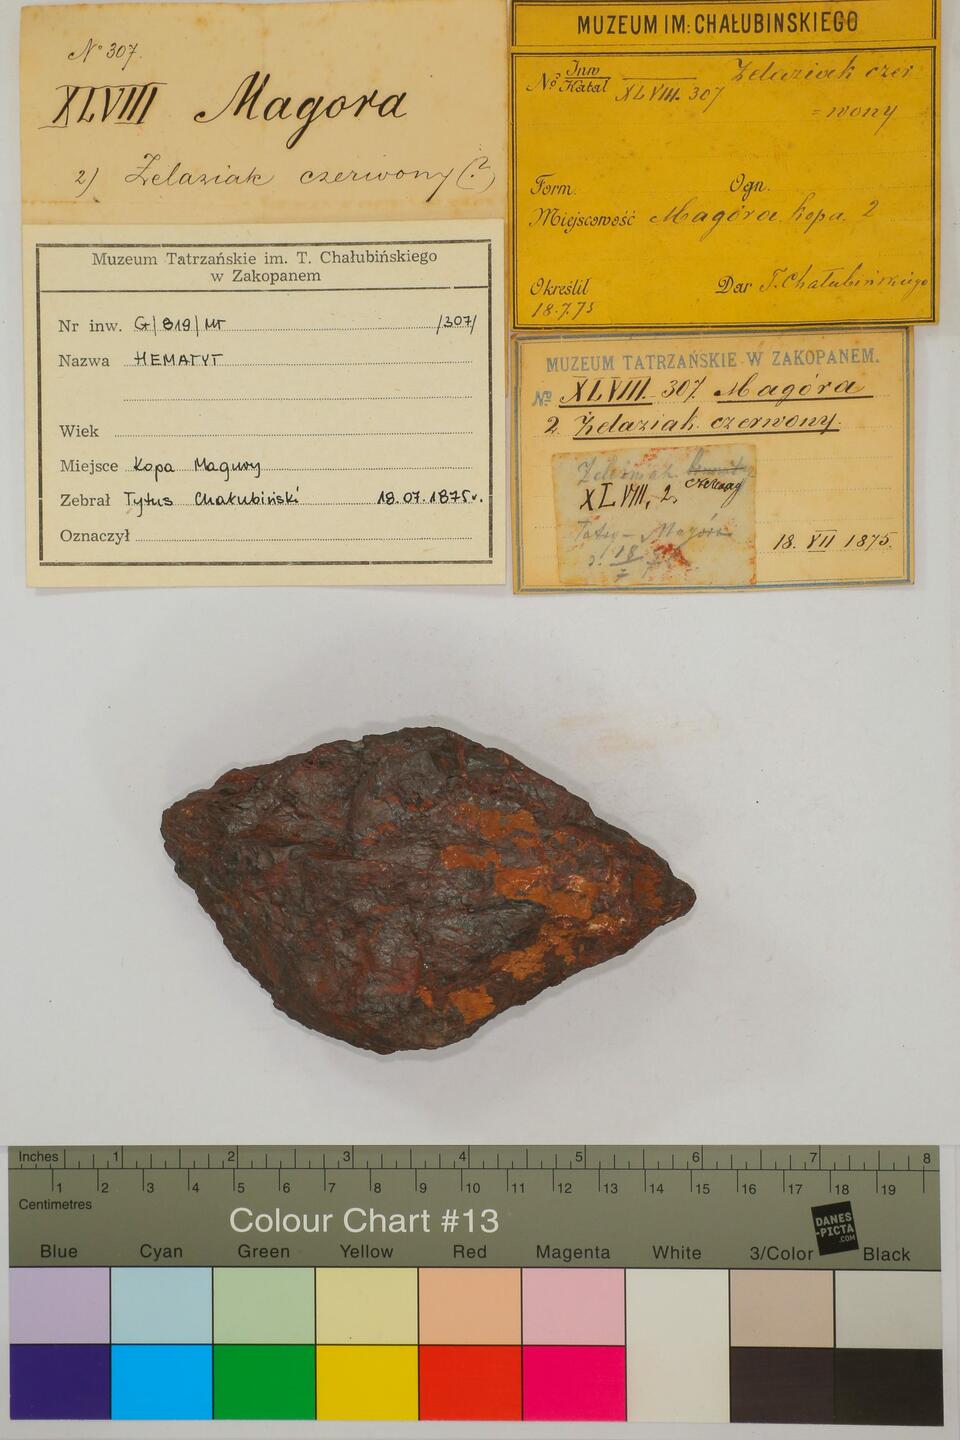 No 307.
XLVIII Magora
2) Żelaziak czerwony (?)
MUZEUM IM: CHAŁUBINSKIEGO
No Inw Katal XLVIII. 307 Żelaziak czer
=wony
Form. Ogn.
Miejscowość Magóra kopa 2
Określił Dar T. Chałubińskiego
18.7.75
Muzeum Tatrzańskie im. T. Chałubińskiego
w Zakopanem
Nr inw. G/819/MT /307/
Nazwa HEMATYT
Wiek
Miejsce Kopa Magury
Zebrał Tytus Chałubiński 18.07.1875r.
Oznaczył
MUZEUM TATRZAŃSKIE W ZAKOPANEM.
No XLVIII. 307. Magóra
2 Żelaziak czerwony.
czerwony
XLVIII, 2.
Tatry - Magóra
18
18. VII 1875.
Inches 1 2 3 4 5 6 7 8
1 2 3 4 5 6 7 8 9 10 11 12 13 14 15 16 17 18 19
Centimetres
Colour Chart #13
DANES
-PICTA
.COM
Blue Cyan Green Yellow Red Magenta White 3/Color Black